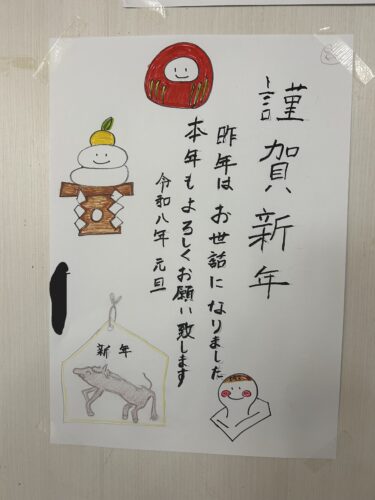 謹賀新年
昨年は お世話に なりました
本年も よろしくお願い致します
令和八年 元旦
新年